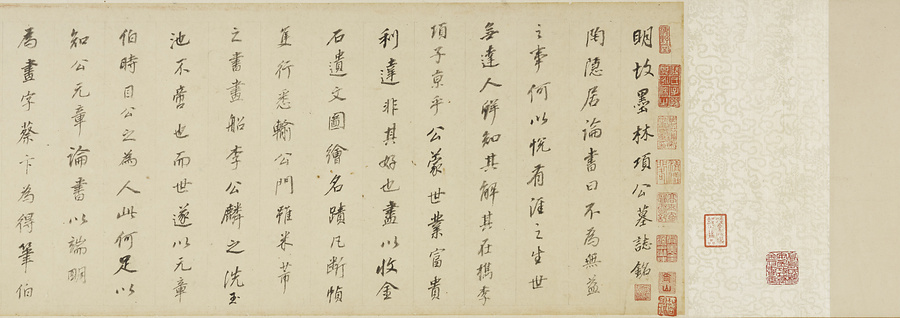 明故墨林項公墓誌銘
陶隱居論書曰不為無益
之事何以悅有涯之生世
無達人解知其解其在檇李
項子京乎公蒙世業富貴
利達非其好也盡以收金
石遺文圖繪名蹟凡斷幀
隻行悉輸公門雖米芾
之書畫船李公麟之洗玉
池不啻也而世遂以元章
伯時目公之為人此何足以
知公元章論書以端明
為畫字蔡卞為得筆伯